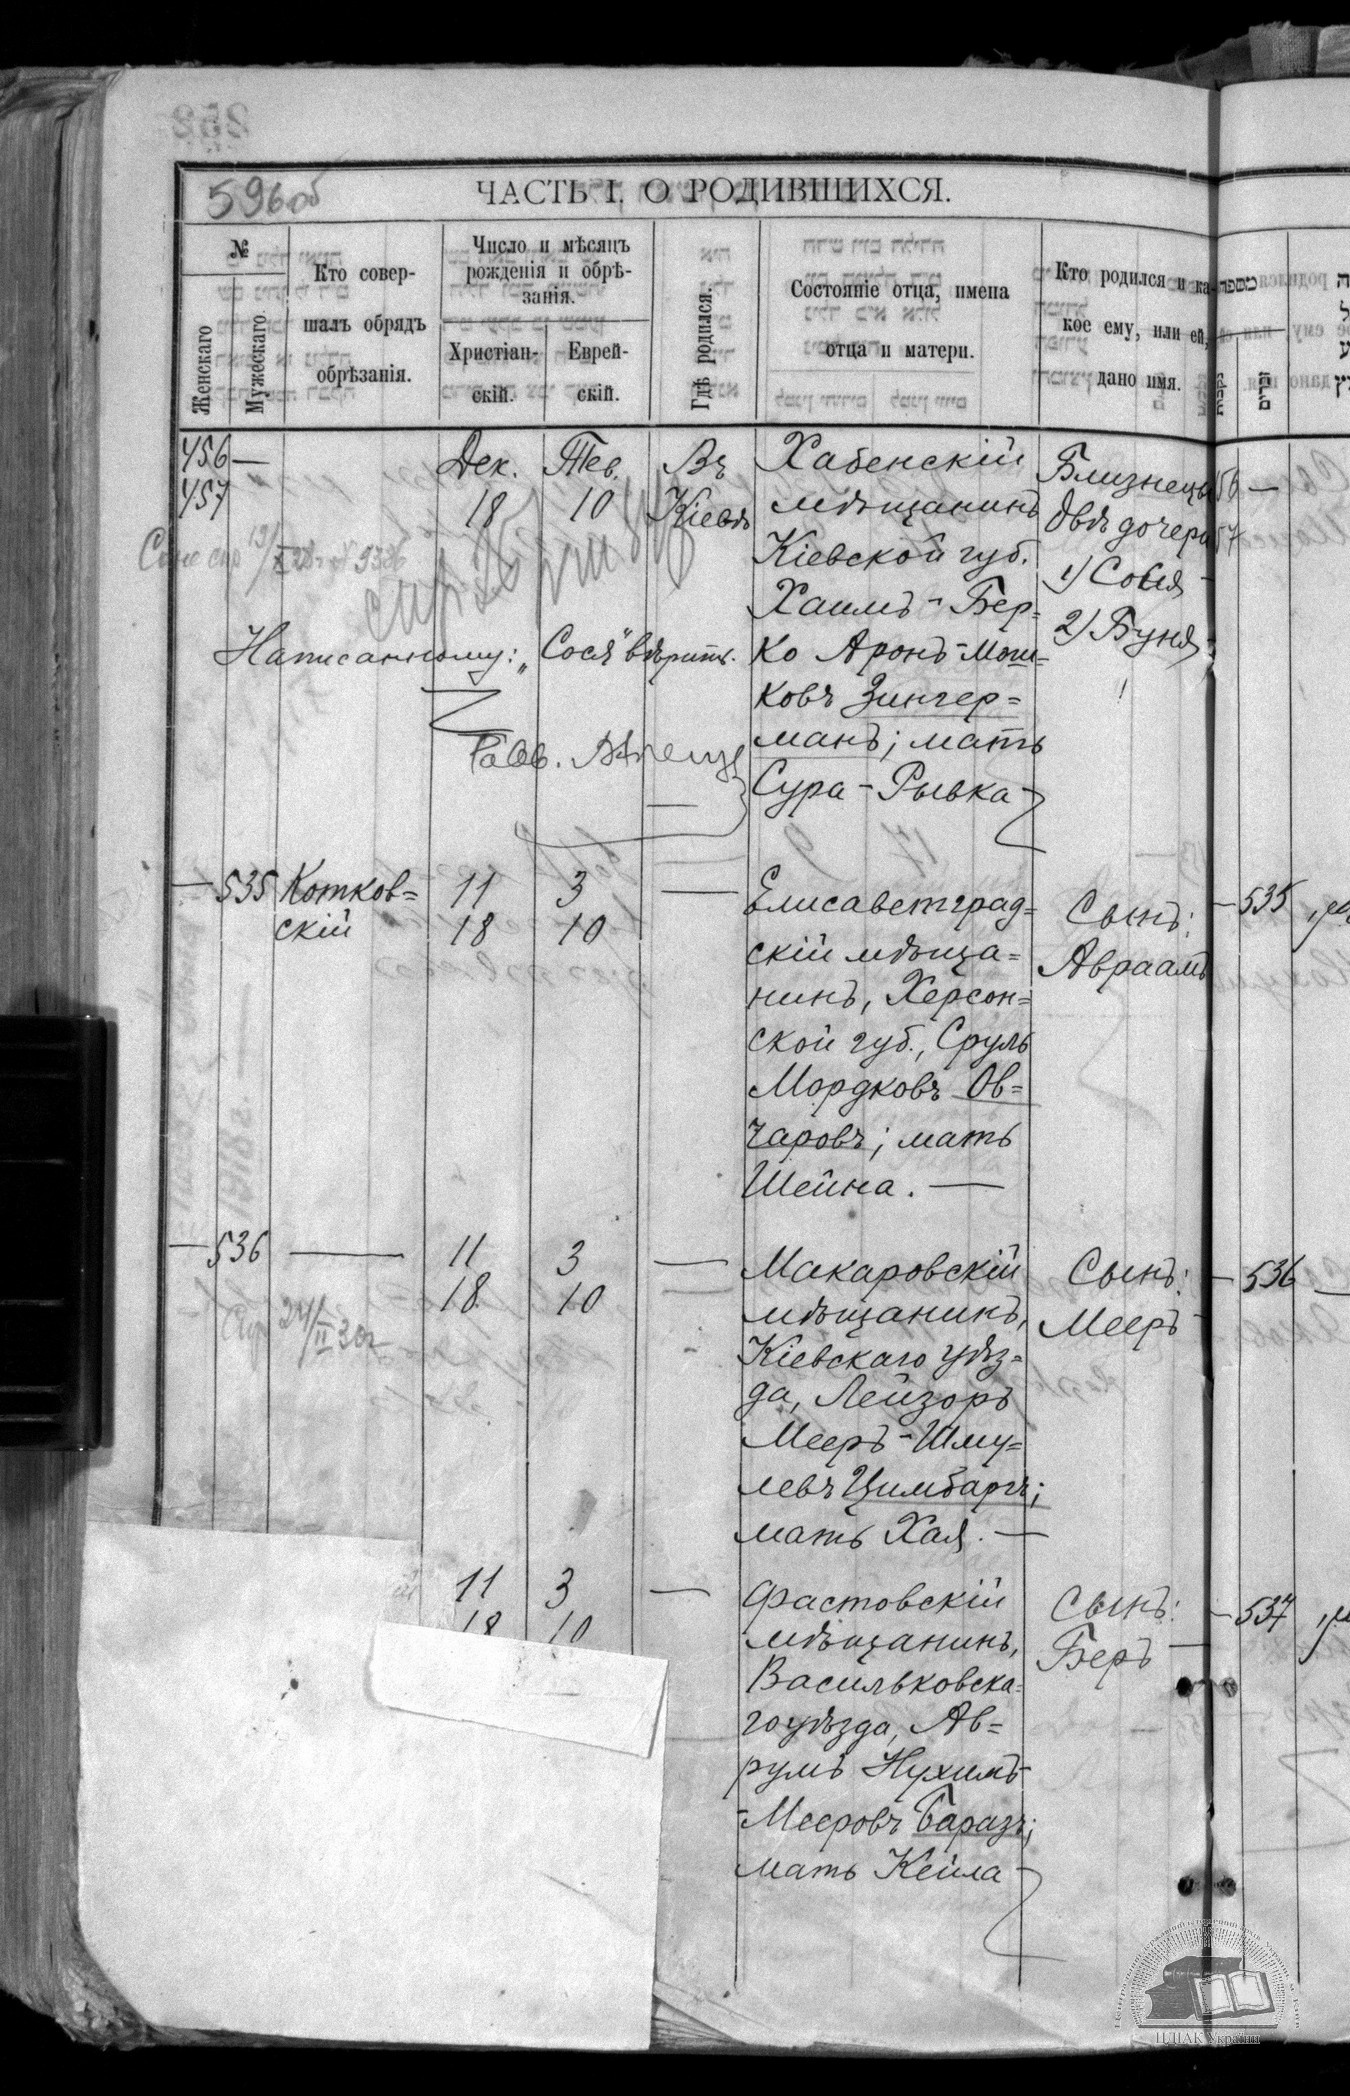 596об
ЧАСТЬ I. О РОДИВШИХСЯ.
№
Женскаго
Мужескаго
Кто совер-
шалъ обрядъ
обрѣзанія.
Число и мѣсяцъ
рожденія и обрѣ-
занія.
Христіан-
скій.
Еврей-
скій.
Гдѣ родился.
Состояніе отца, имена
отца и матери.
Кто родился и ка-
кое ему, или ей,
дано имя.
456 —
457
Дек.
18
Тев.
10
Въ
Кіевѣ
Хабенскій
мѣщанинъ
Кіевской губ.
Хаимъ-Бер=
ко Аронъ-Мош=
ковъ Зингер=
манъ; мать
Сура-Рывка
Близнецы
двѣ дочери
1) Сося
2) Буня
Написанному: „Сося" вѣрить.
Равв.
— 535
Котков=
скій
11
18
3
10
—
Елисаветград=
скій мѣща=
нинъ, Херсон=
ской губ., Сруль
Мордковъ Ов=
чаровъ; мать
Шейна. —
Сынъ:
Авраамъ
— 535
— 536
—
11
18
3
10
—
Макаровскій
мѣщанинъ,
Кіевскаго уѣз=
да, Лейзоръ
Мееръ-Шму=
левъ Цимбаргъ;
мать Хая. —
Сынъ:
Мееръ
— 536
24/II 30г
11
18
3
10
—
Фастовскій
мѣщанинъ,
Васильковска=
го уѣзда, Ав=
румъ Нухимъ-
-Мееровъ Баразъ;
мать Кейла
Сынъ:
Беръ —
— 537
ЦДІАК України